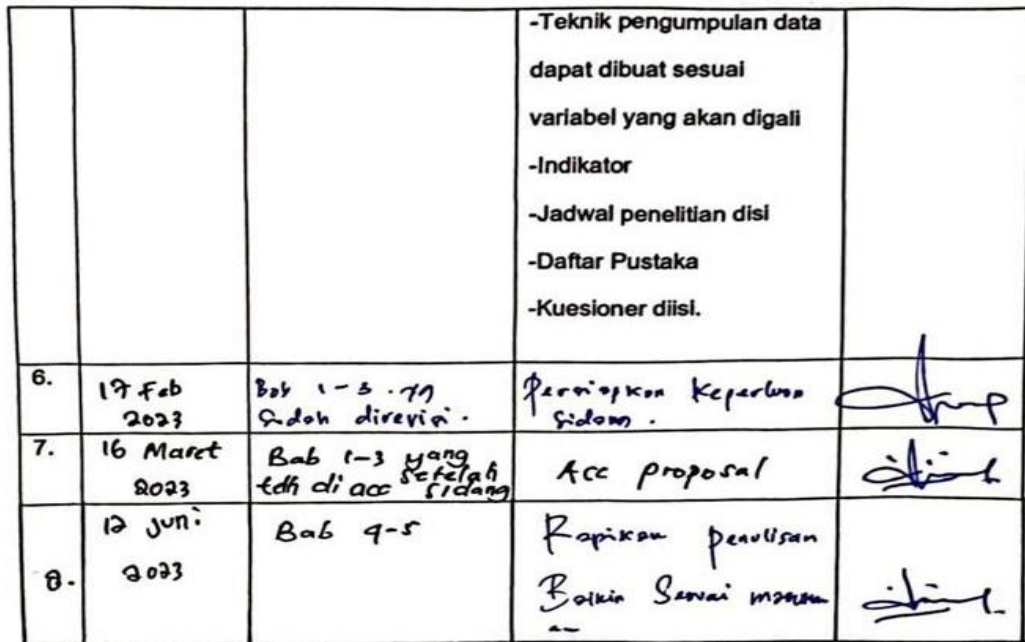 -Teknik pengumpulan data
dapat dibuat sesuai
variabel yang akan digali
-Indikator
-Jadwal penelitian disi
-Daftar Pustaka
-Kuesioner diisi.
6.
17 Feb
2023
Bab 1-3 . yg
Sudah direvisi.
Persiapkan Keperluan
Sidang.
7.
16 Maret
2023
Bab 1-3 yang
tdh di acc setelah
sidang
Acc proposal
8.
12 Juni
2023
Bab 4-5
Rapikan penulisan
Sesuai